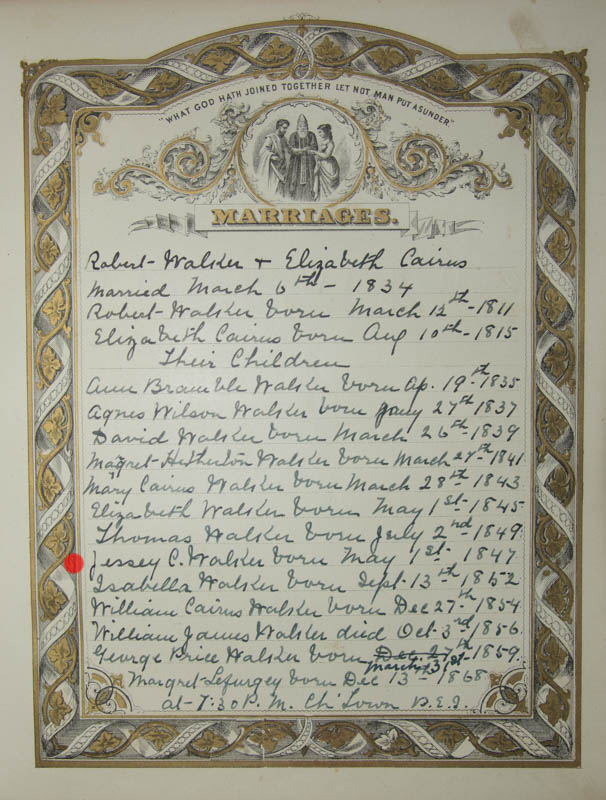 "WHAT GOD HATH JOINED TOGETHER LET NOT MAN PUT ASUNDER."
MARRIAGES.
Robert Walker + Elizabeth Cairns
Married March 6th - 1834
Robert Walker born March 12th - 1811
Elizabeth Cairns born Aug 10th - 1815
Their Children
Ann Bramble Walker born Ap. 19th 1835
Agnes Wilson Walker born Jany 27th 1837
David Walker born March 26th 1839
Magret Walker born March 1841
Mary Cairns Walker born March 28th 1843
Elizabeth Walker born May 1st - 1845
Thomas Walker born July 2nd 1849
Jessey C. Walker born May 1st 1847
Isabella Walker born Sept 13th 1852
William Cairns Walker born Dec 27th 1854
William James Walker died Oct 3rd 1856
George Price Walker born Dec. 27th 1859
March 31st
Margret Lefurgey born Dec 13th 1868
at 7.30 P.M. Ch'Town P.E.I.